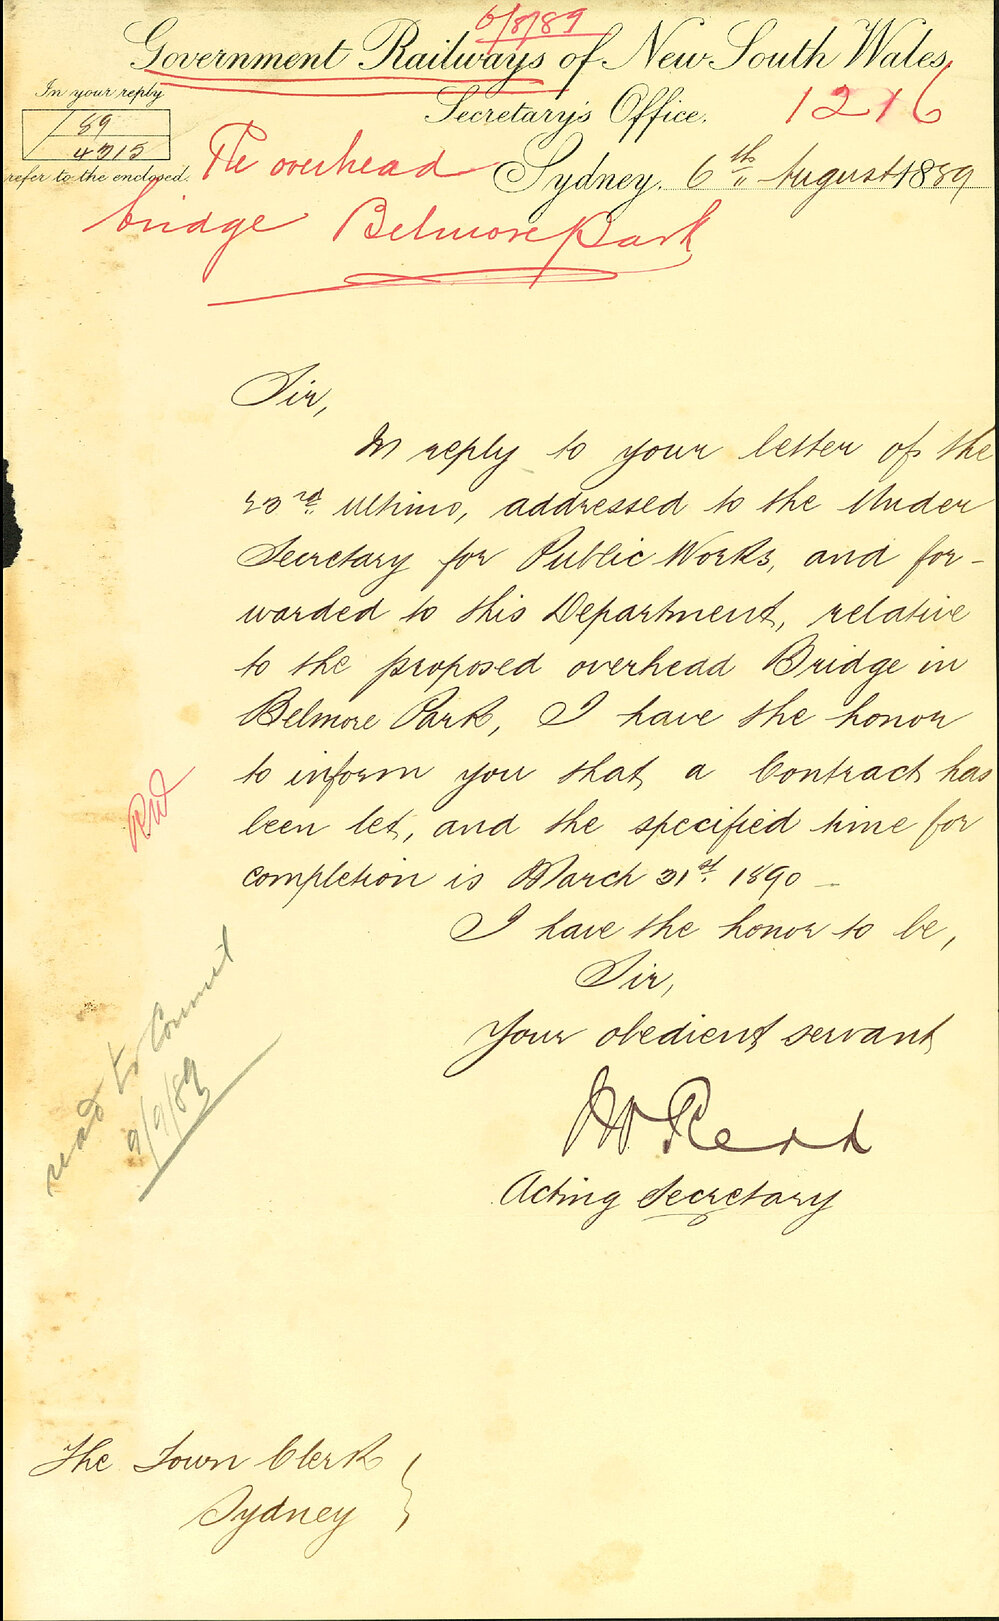 6/8/89
Government Railways of New South Wales,
Secretary's Office.
1216
In your reply
89
4315
refer to the enclosed.
Sydney, 6th August 1889
The overhead
bridge Belmore Park
Sir,
In reply to your letter of the
23rd ultimo, addressed to the Under
Secretary for Public Works, and for-
warded to this Department, relative
to the proposed overhead Bridge in
Belmore Park, I have the honor
to inform you that a Contract has
been let, and the specified time for
completion is March 31st. 1890 —
I have the honor to be,
Sir,
Your obedient servant
Acting Secretary
RW
read to Council
9/9/89
The Town Clerk
Sydney